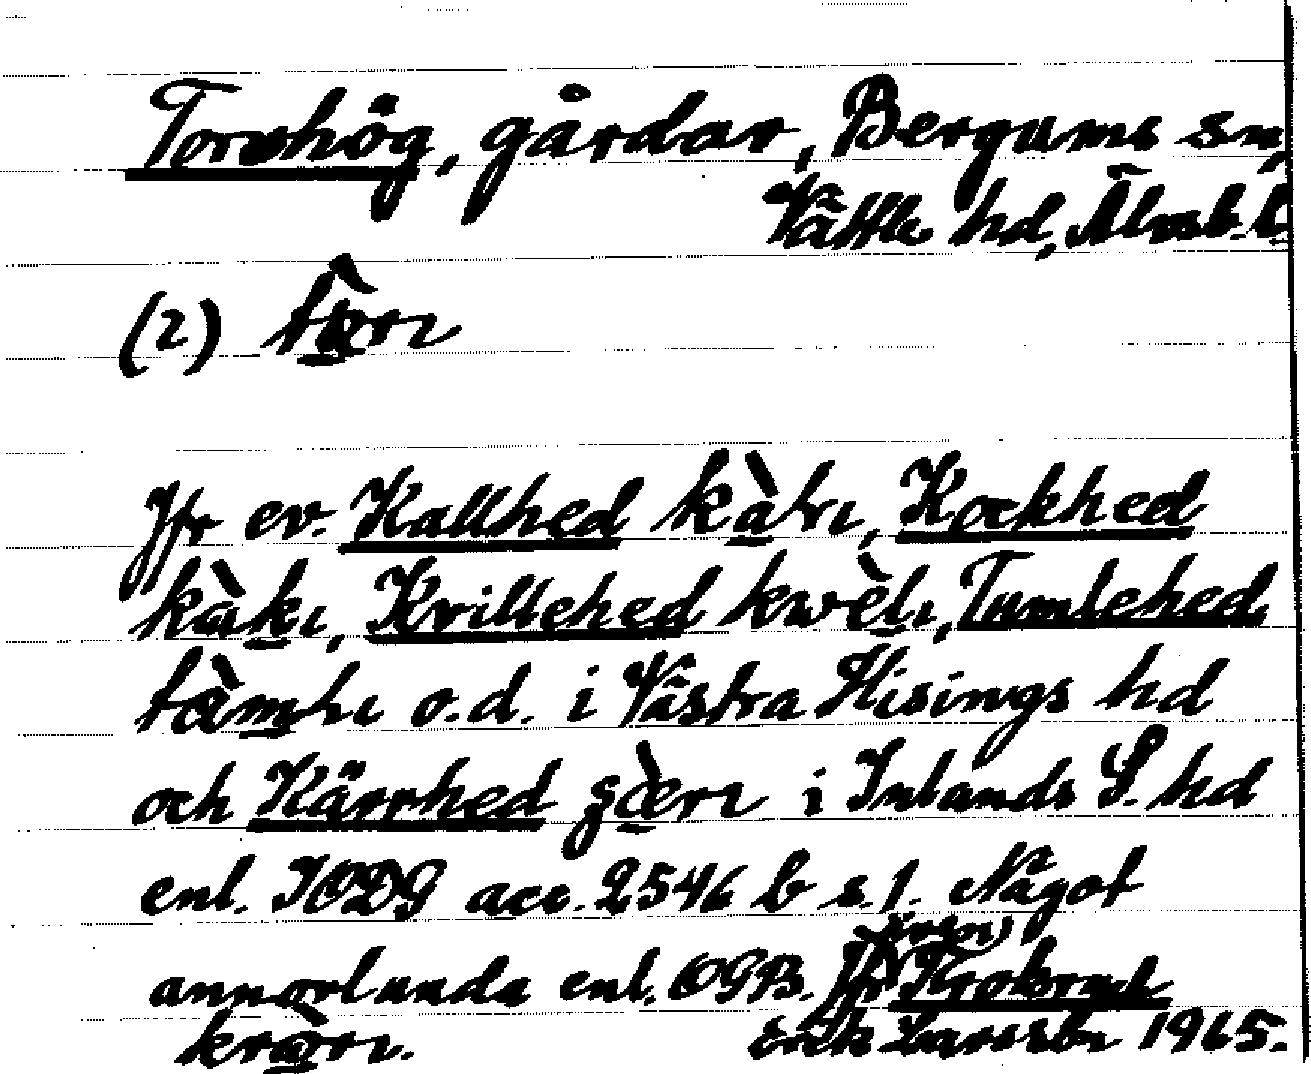 Torshög, gårdar, Bergums sn,
Vättle hd, Älvsb. l.
(2)
Jfr ev. Kallhed kàlı, Kockhed
kàkı, Kvillehed kwèlı, Tumlehed
tàmlı o.d. i Västra Hisings hd
och Kärrhed i Inlands S. hd
enl. IODG acc. 2546 b s. 1. Något
annorlunda enl. OGB. Jfr även
Erik Larsson 1965.